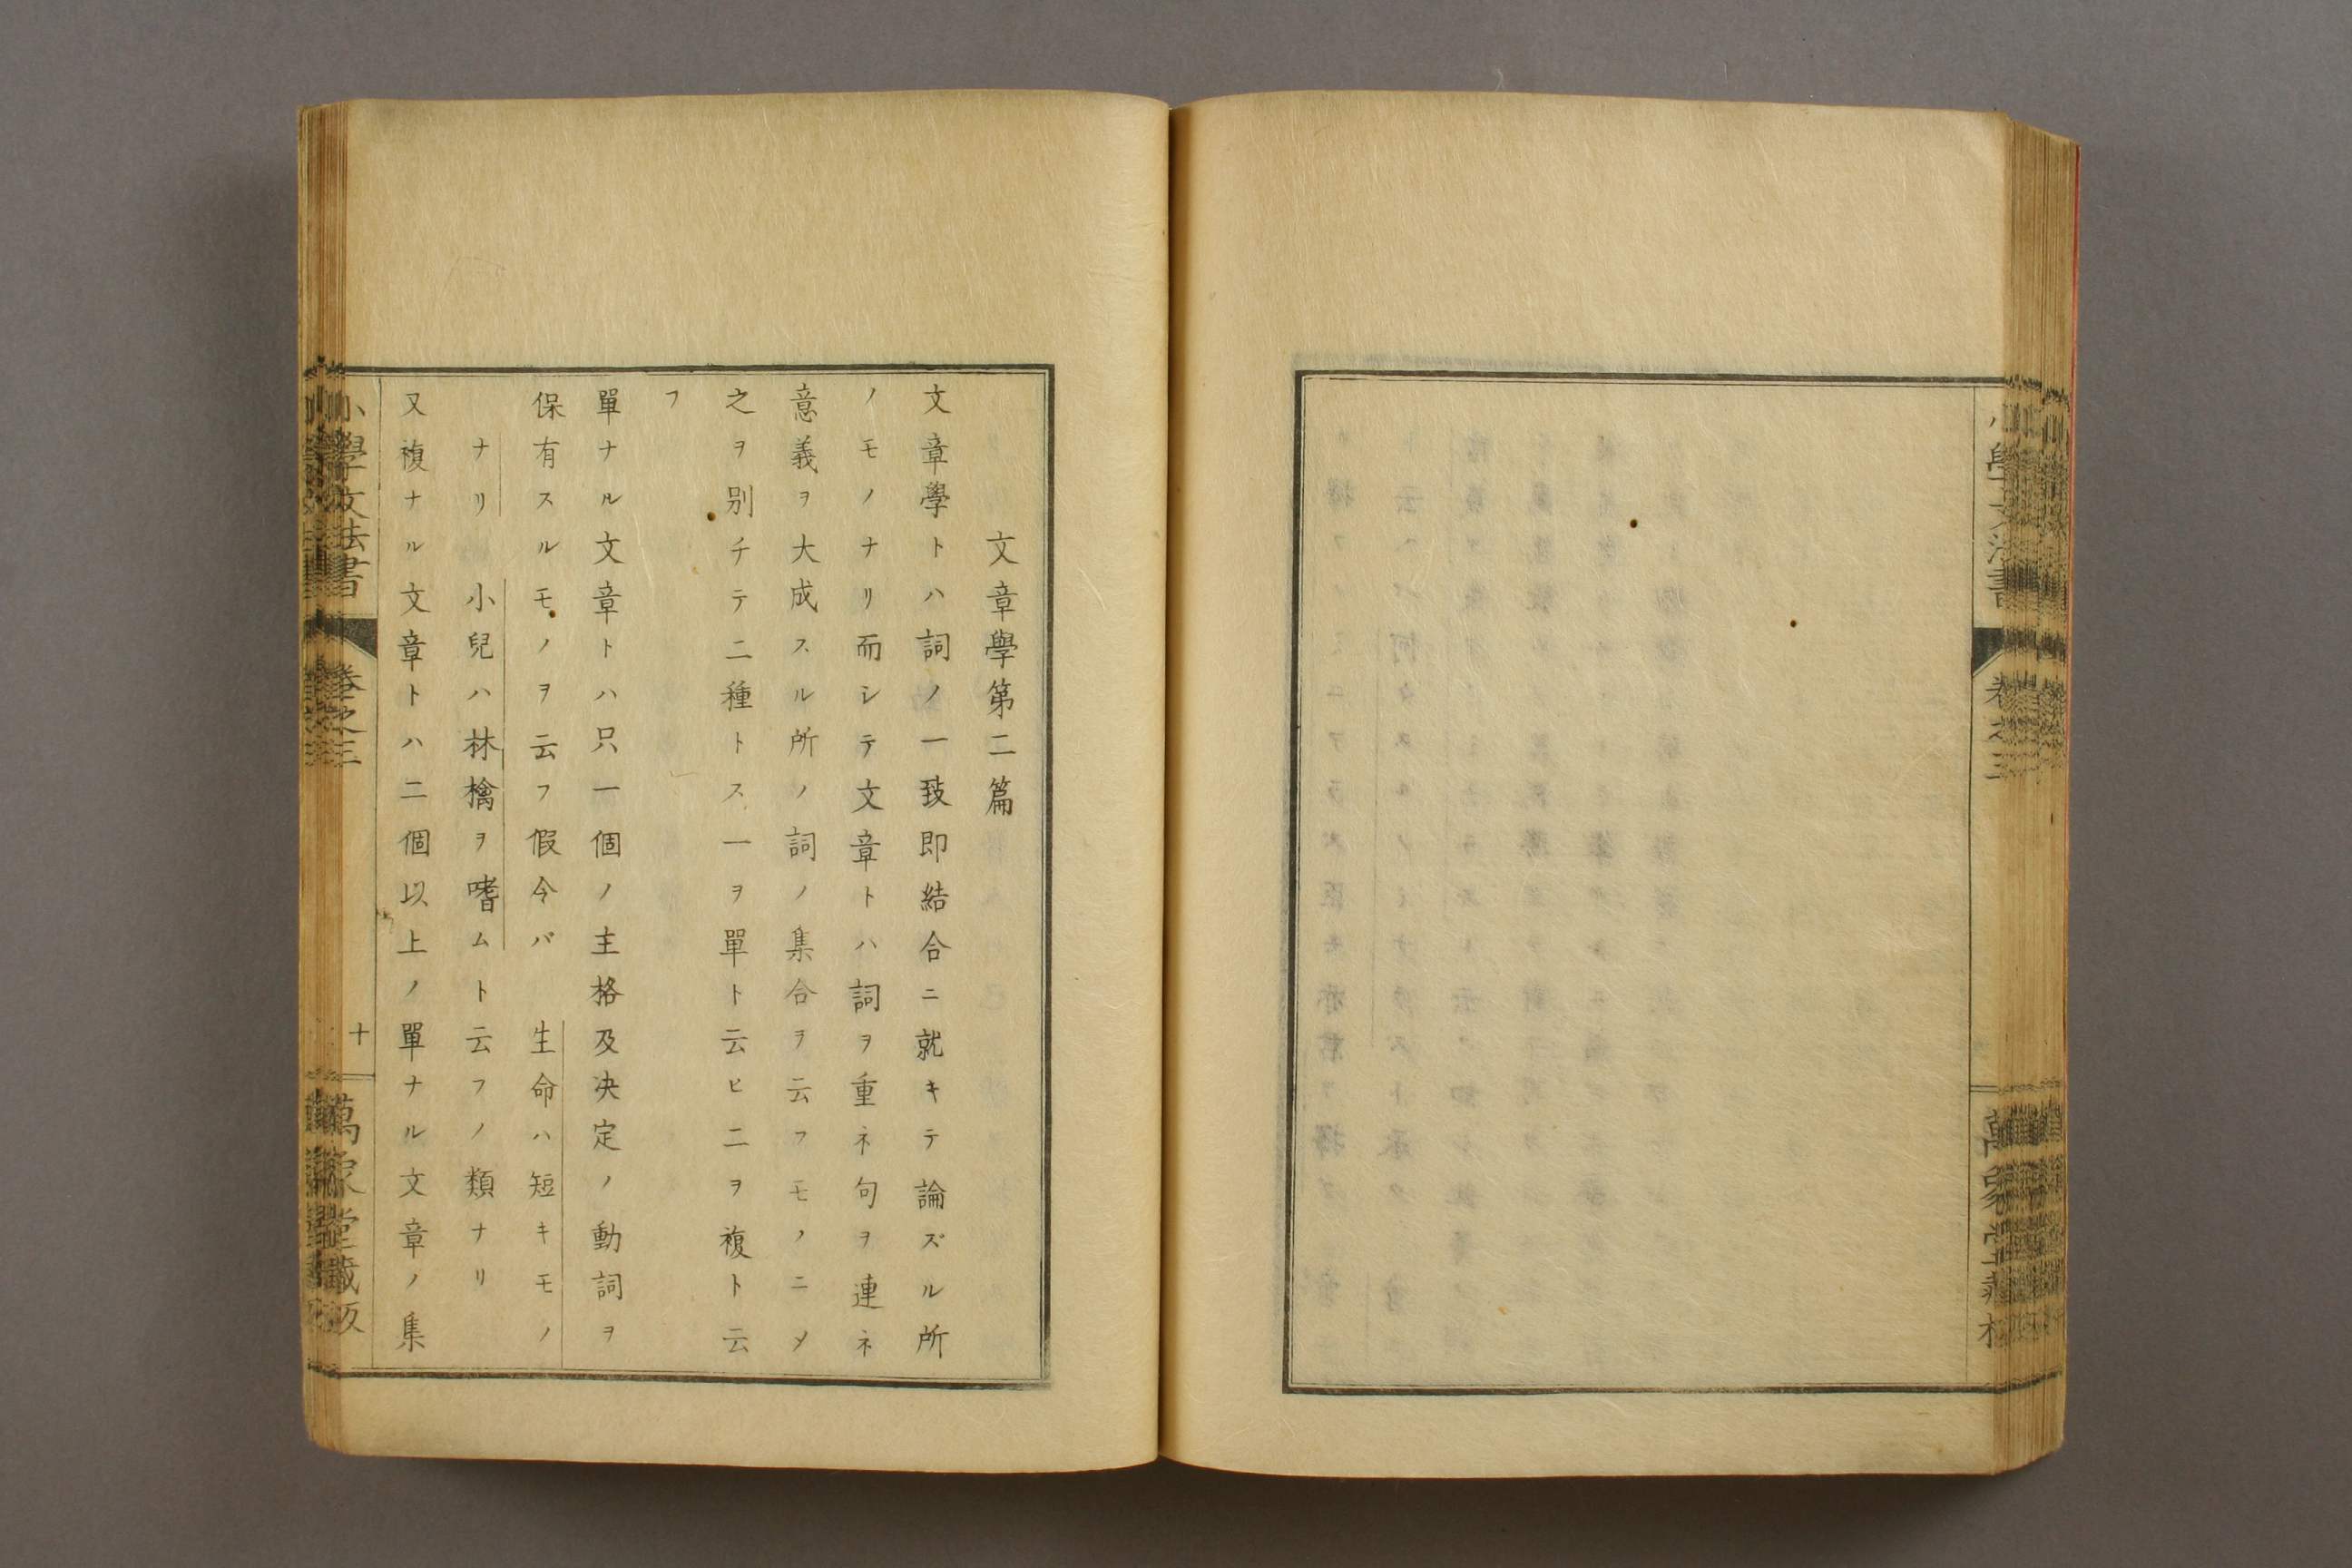 小學文法書
卷之三
萬象堂藏板
文章學第二篇
文章學トハ詞ノ一致即結合ニ就キテ論ズル所
ノモノナリ而シテ文章トハ詞ヲ重ネ句ヲ連ネ
意義ヲ大成スル所ノ詞ノ集合ヲ云フモノニメ
之ヲ別チテ二種トス一ヲ單ト云ヒ二ヲ複ト云
フ
單ナル文章トハ只一個ノ主格及決定ノ動詞ヲ
保有スルモノヲ云フ假令バ 生命ハ短キモノ
ナリ 小兒ハ林檎ヲ嗜ムト云フノ類ナリ
又複ナル文章トハ二個以上ノ單ナル文章ノ集
小學文法書
卷之三
十
萬象堂藏板